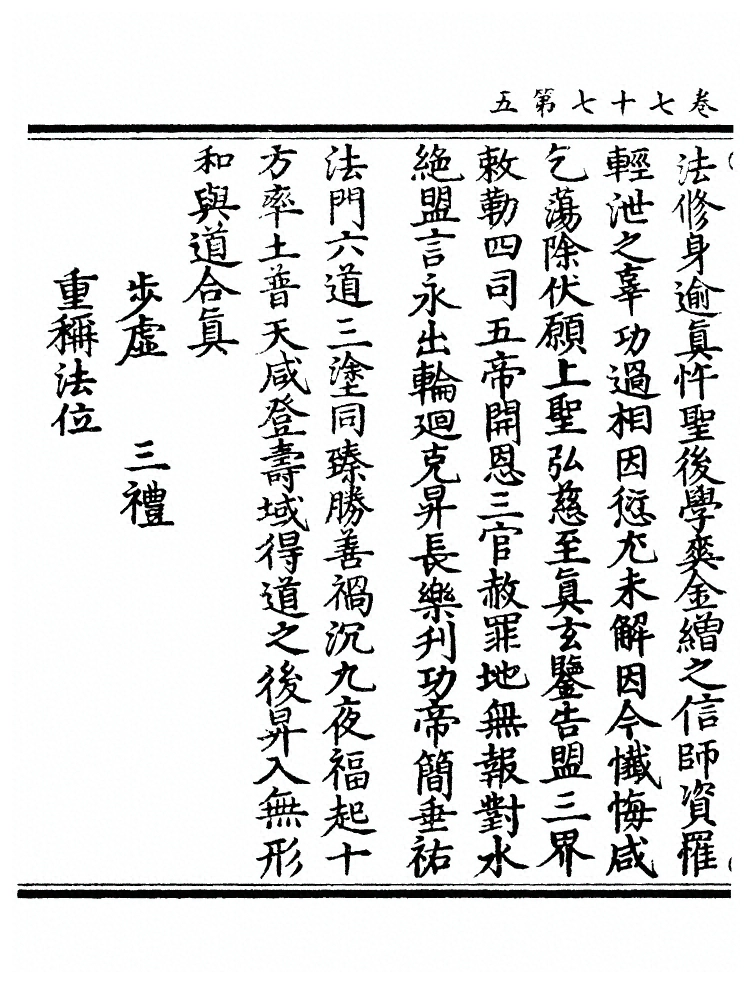 卷七十七第五
法修身逾眞忤聖後學爽金繒之信師資罹
輕泄之辜功過相因愆尤未解因今懺悔咸
乞蕩除伏願上聖弘慈至眞玄鑒告盟三界
敕勒四司五帝開恩三官赦罪地無報對水
絶盟言永出輪廻克昇長樂刋功帝簡垂祐
法門六道三塗同臻勝善禍沉九夜福起十
方率土普天咸登壽域得道之後昇入無形
和與道合眞
步虛　三禮
重稱法位